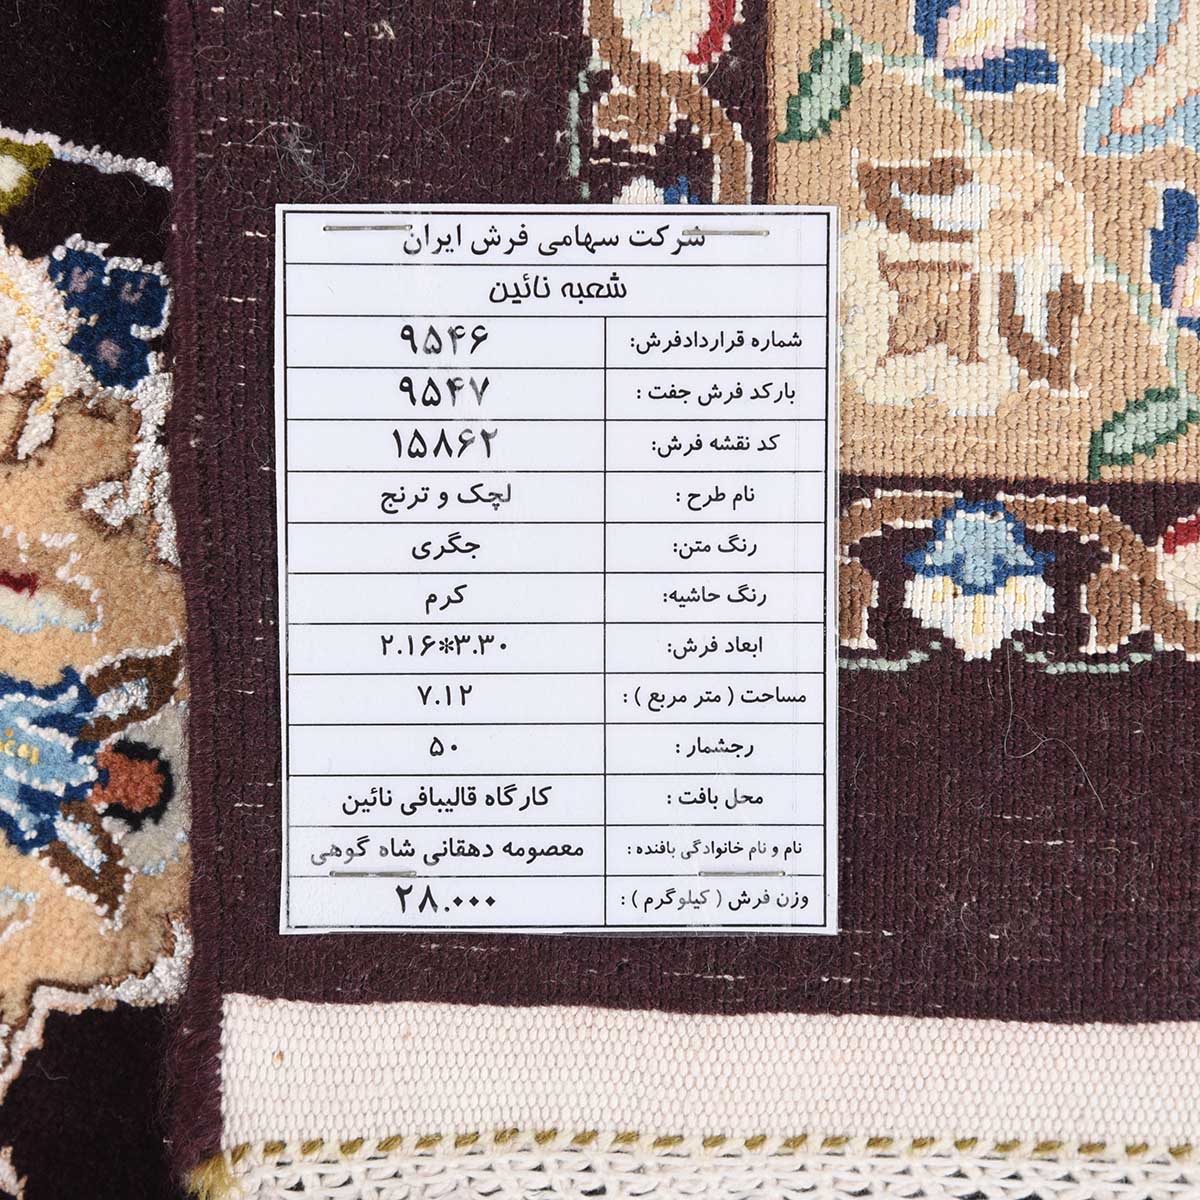 شرکت سهامی فرش ایران
شعبه نائین
شماره قراردادفرش: ۹۵۴۶
بارکد فرش جفت : ۹۵۴۷
کد نقشه فرش: ۱۵۸۶۲
نام طرح : لچک و ترنج
رنگ متن: جگری
رنگ حاشیه: کرم
ابعاد فرش: ۲.۱۶*۳.۳۰
مساحت ( متر مربع ) : ۷.۱۲
رجشمار : ۵۰
محل بافت : کارگاه قالیبافی نائین
نام و نام خانوادگی بافنده : معصومه دهقانی شاه گوهی
وزن فرش ( کیلوگرم ) : ۲۸.۰۰۰